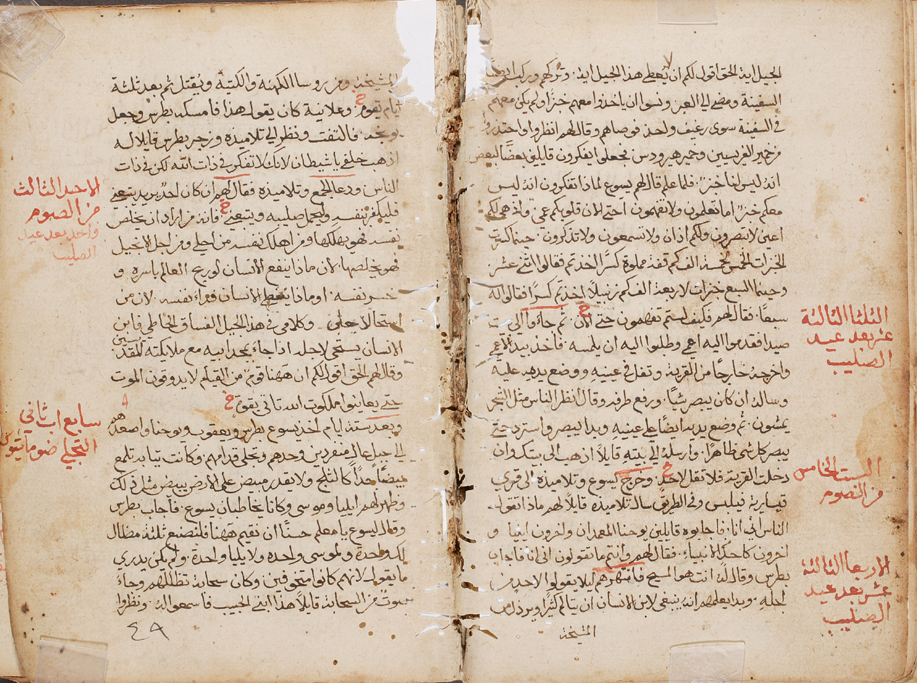 الجيل اية الحق اقول لكم ان يعطى هذا الجيل اية وتركهم وركب
السفينة ومضى الى العبر ونسوا ان ياخذوا معهم خبزا ولم يكن معهم
في السفينة سوى رغيف واحد فوصاهم وقال لهم انظروا واحتدروا
من خمير الفريسيين وخمير هيرودس فجعلوا يفكرون قايلين بعضا لبعض
انه ليس لنا خبز فلما علم قال لهم يسوع لماذا تفكرون انه ليس
معكم خبز اما تعلمون ولا تفهمون احتى الان قلوبكم عمي
اعين لا تبصرون ولكم اذان ولا تسمعون ولا تذكرون حينما كسرت
الخبزات الخمس لخمسة الف كم قفة مملوة كسرا اخذتم فقالوا اثنى عشر
وحينما السبع خبزات لاربعة الف كم زنبيلا اخذتم كسرا فقالوا له
سبعا فقال لهم فكيف لستم تفهمون حتى الان ثم جاؤا الى بيت
صيدا فقدموا اليه اعمى وطلبوا اليه ان يلمسه فاخذ بيد الاعمى
واخرجه خارجا من القرية وتفل في عينيه ووضع يديه عليه
وساله ان كان يبصر شيا ورفع طرفه وقال انظر الناس مثل الشجر
يمشون ثم وضع يديه ايضا على عينيه وبدا يبصر واسترد حتى
يبصر كل شي ظاهرا وارسله الى بيته قايلا اذهب الى بيتك وان
دخلت القرية فلا تقل لاحد وخرج يسوع وتلاميذه الى قرى
قيسارية فيلبس وفي الطريق سال تلاميذه قايلا لهم ماذا تقول
الناس اني انا فاجابوه قايلين يوحنا المعمدان واخرون ايليا و
اخرون كاحد الانبياء فقال لهم وانتم ما تقولون اني انا فاجاب
بطرس وقال له انت هو المسيح فانتهرهم ليلا يقولوا لاحد من
اجله وبدا يعلمهم انه ينبغي لابن الانسان ان يتالم كثيرا ويرذل من
المشيخة
الثلثا الثالثة
عشر بعد عيد
الصليب
السبت الخامس
من الصوم
الاربعا الثالثة
عشر بعد عيد
الصليب
المشيخة ومن روسا الكهنة والكتبة ويقتل ثم بعد ثلثة
ايام يقوم وعلانية كان يقول هذا فامسكه بطرس وجعل
فالتفت ونظر الى تلاميذه وزجر بطرس قايلا له
اذهب خلفي يا شيطان لانك لا تفكر في ذات الله لكن في ذات
الناس ودعا الجمع وتلاميذه فقال لهم ان كان احد يريد يتبعني
فليكفر بنفسه وليحمل صليبه ويتبعني فانه من اراد ان يخلص
نفسه فهو يهلكها ومن اهلك نفسه من اجلي ومن اجل الانجيل
فهو يخلصها لان ماذا ينفع الانسان لو ربح العالم باسره و
خسر نفسه او ماذا يعطي الانسان فداء نفسه لان من
استحيا لاجلي وكلامي في هذا الجيل الفساق الخاطي فابن
الانسان يستحي لاجله اذا جاء بمجد ابيه مع ملايكته القديسين
وقال لهم الحق اقول لكم ان ههنا قوم من القيام لا يدوقون الموت
حتى يعاينوا ملكوت الله تاتي بقوة
وبعد ستة ايام اخذ يسوع بطرس ويعقوب ويوحنا واصعدهم
الى جبل عال منفردين وحدهم وتجلى قدامهم وكانت ثيابه تلمع
مبيضا جدا كالثلج ولا يقدر مبيض على الارض يبيض مثل ذلك
وظهر لهم ايليا وموسى وكانا يخاطبان يسوع فاجاب بطرس
وقال ليسوع يا معلم حسنا ان نقيم ههنا فلنصنع ثلثة مظال
لك واحدة ولموسى واحدة ولايليا واحدة ولم يكن يدري
ما يقول لانهم كانوا متخوفين وكان سحابة تظللهم وجاء
صوت من السحابة قايلا هذا ابني الحبيب فاسمعوا له ونظروا
٤٩
الاحد الثالث
من الصوم
واحد بعد عيد
الصليب
سابع اب ثاني
التجلي